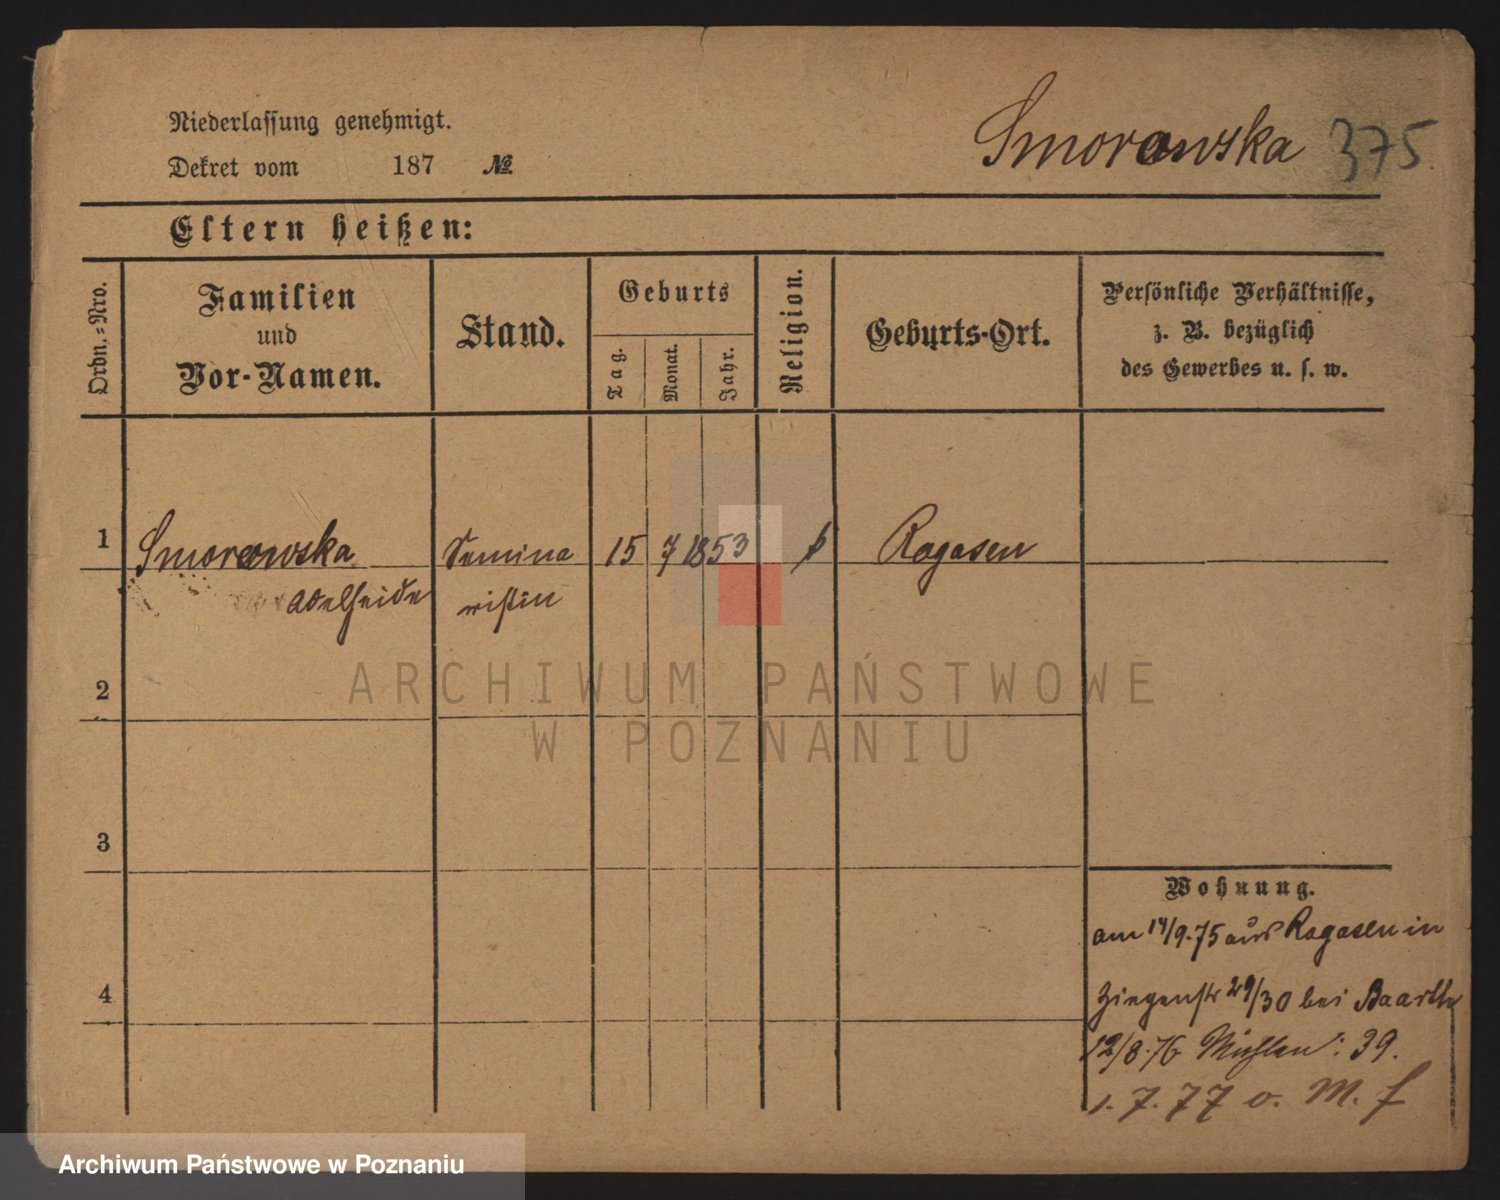 Niederlassung genehmigt.
Smorowska 375
Dekret vom 187 №
Eltern heißen:
Ordn.=Nro.
Familien
und
Vor-Namen.
Stand.
Geburts
Tag.
Monat.
Jahr.
Religion.
Geburts-Ort.
Persönliche Verhältnisse,
z. B. bezüglich
des Gewerbes u. s. w.
1 Smorowska Semina 15 7 1853 Rogasen
Adelheide ristin
2
3
4
Wohnung.
am 14/9.75 aus Rogasen in
Ziegenstr 29/30 bei Baarth
12/8.76 Mühlen: 39.
1. 7. 77 o. M. f
ARCHIWUM PAŃSTWOWE
W POZNANIU
Archiwum Państwowe w Poznaniu